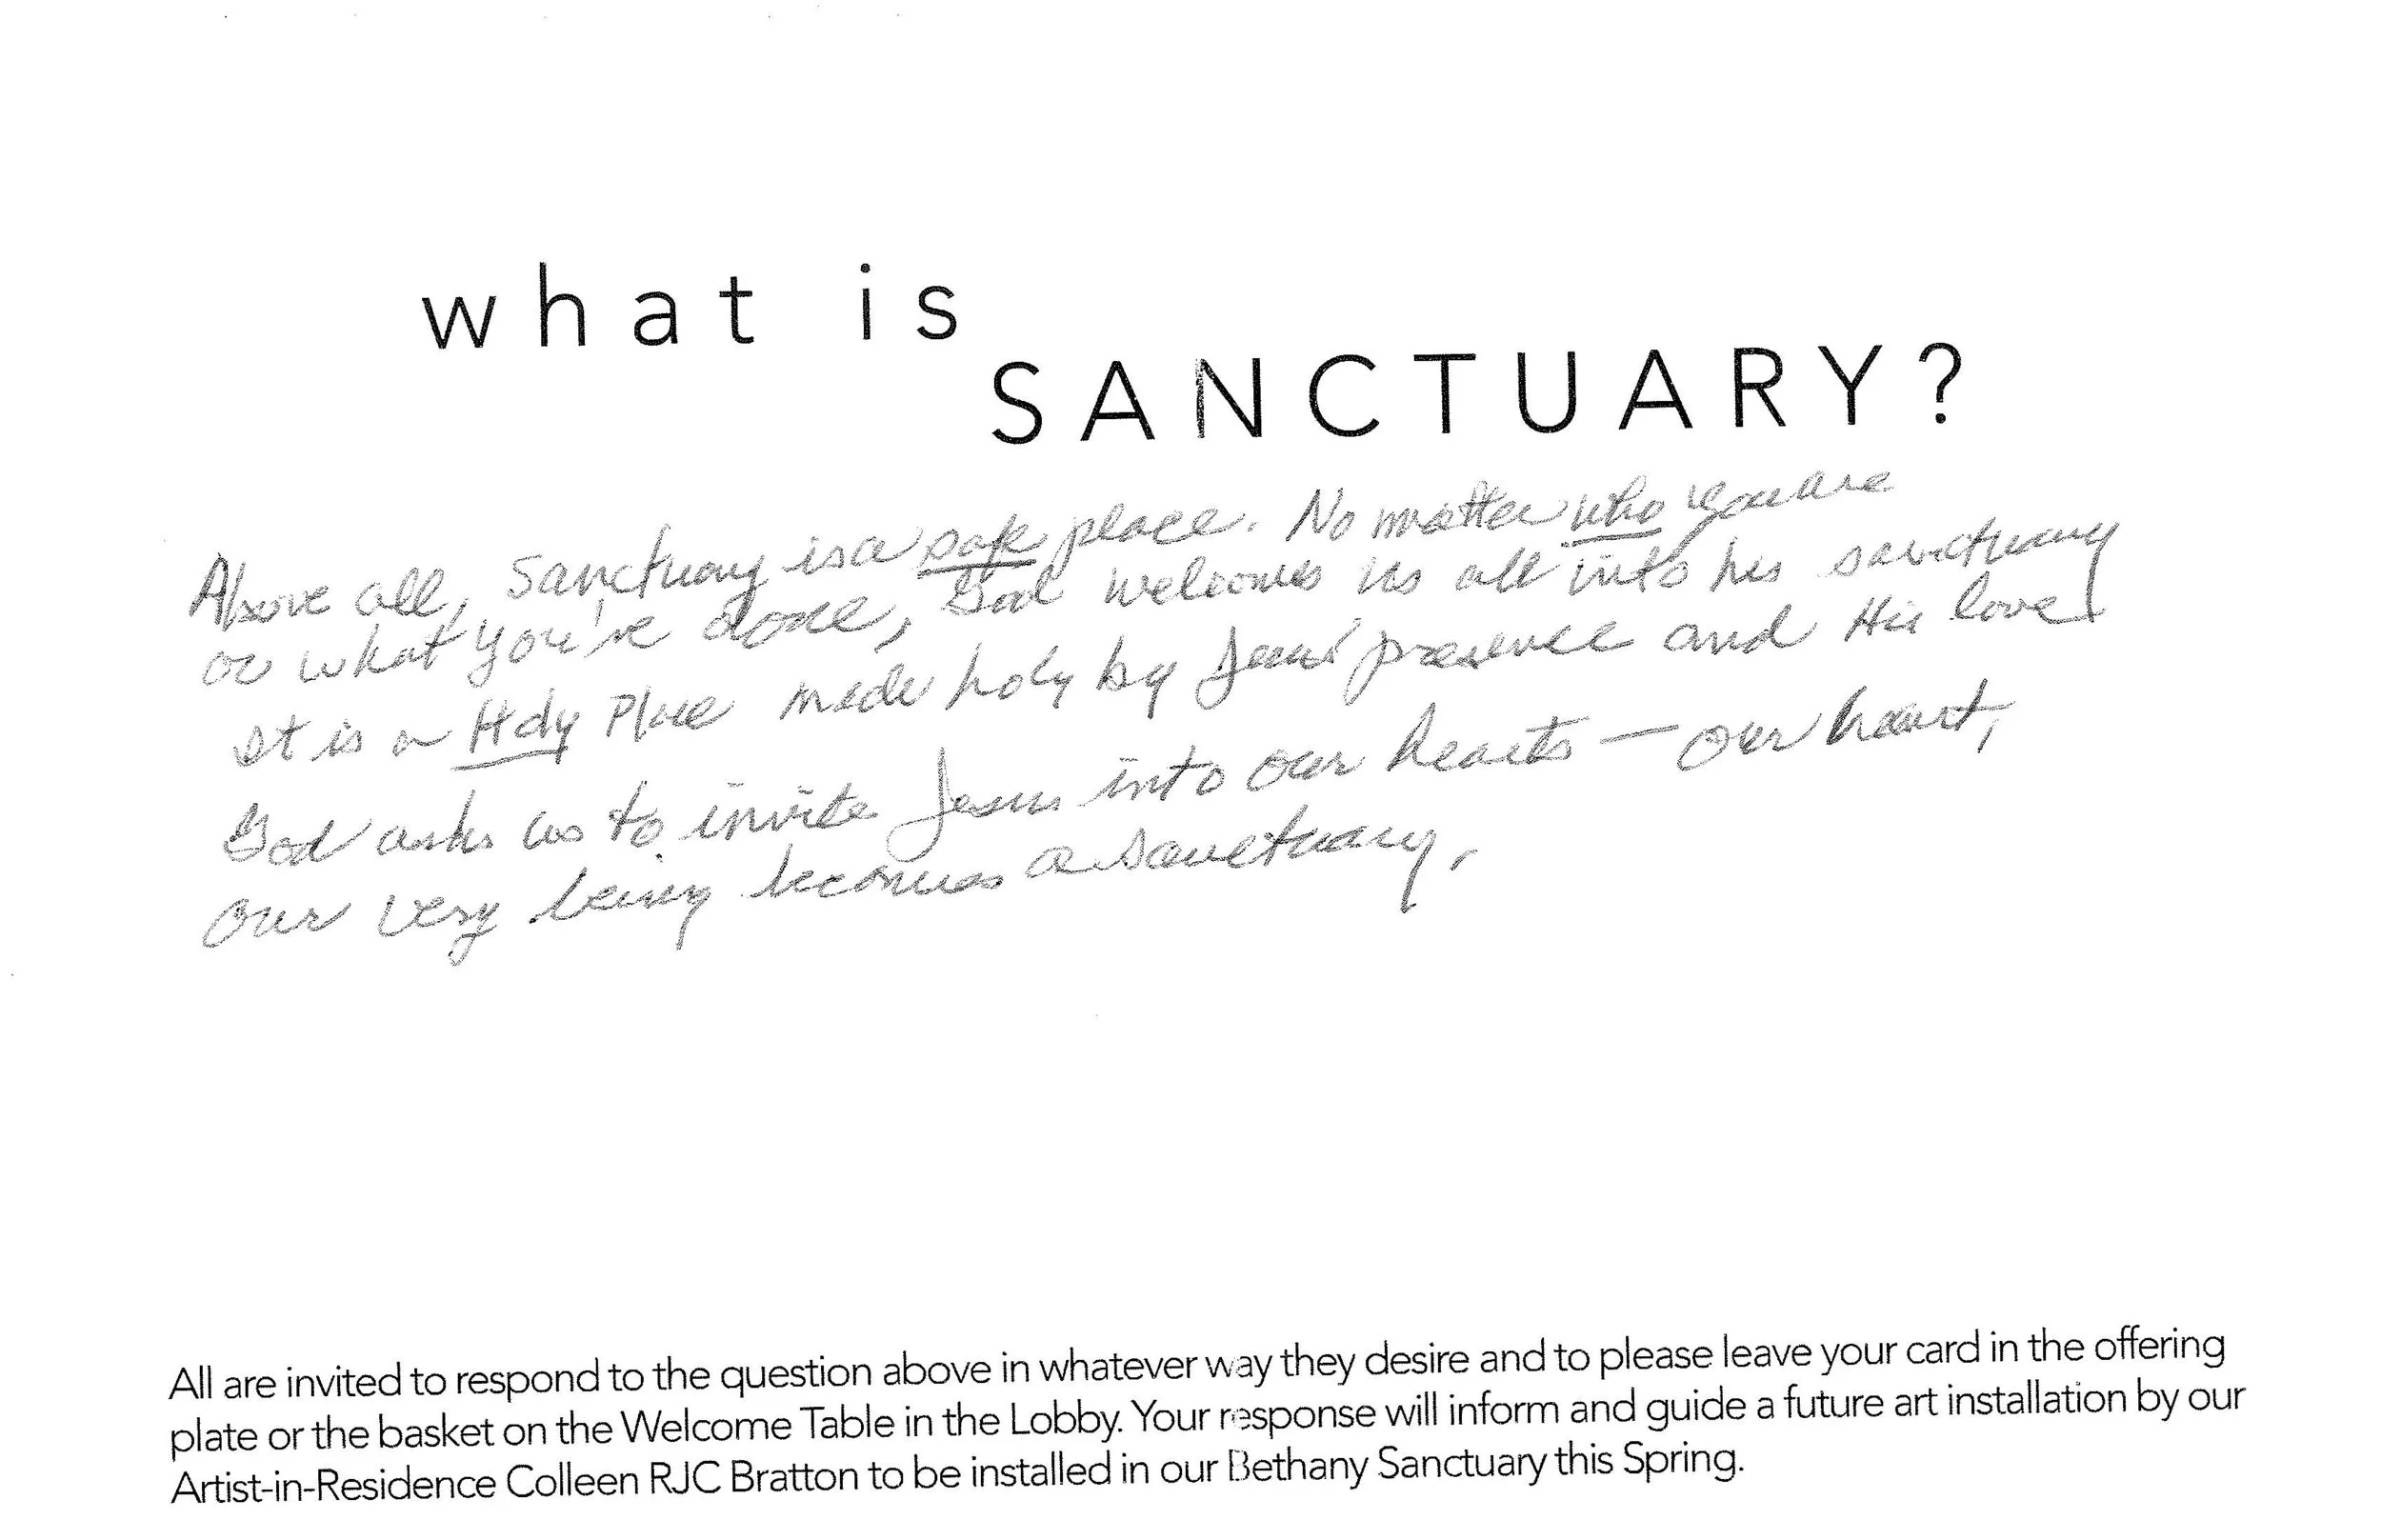 what is
SANCTUARY?
Above all, Sanctuary is a safe place. No matter who you are
or what you've done, God welcomes us all into his sanctuary
It is a Holy Place made holy by Jesus' presence and His love
God asks us to invite Jesus into our hearts — our heart,
our very being becomes a sanctuary.
All are invited to respond to the question above in whatever way they desire and to please leave your card in the offering
plate or the basket on the Welcome Table in the Lobby. Your response will inform and guide a future art installation by our
Artist-in-Residence Colleen RJC Bratton to be installed in our Bethany Sanctuary this Spring.